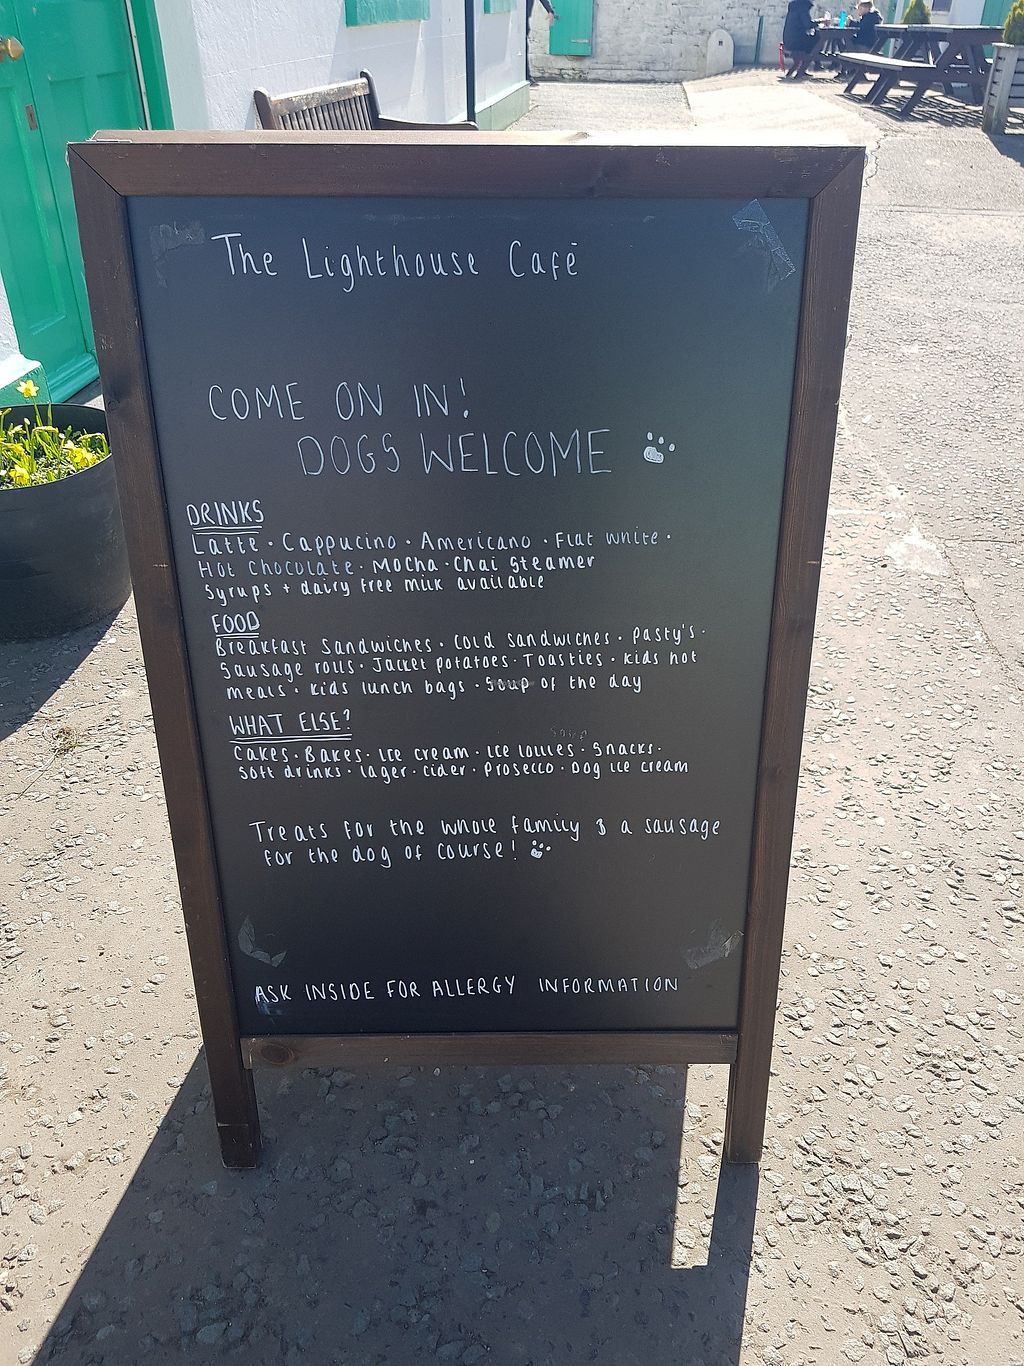 The Lighthouse Café
COME ON IN!
DOGS WELCOME
DRINKS
Latte · Cappucino · Americano · Flat white ·
Hot Chocolate · Mocha · Chai Steamer
Syrups + dairy free milk available
FOOD
Breakfast Sandwiches · Cold sandwiches · Pasty's ·
Sausage rolls · Jacket potatoes · Toasties · kids hot
meals · kids lunch bags · Soup of the day
WHAT ELSE?
Cakes · Bakes · Ice cream · Ice lollies · Snacks ·
Soft drinks · lager · cider · Prosecco · Dog ice cream
Treats for the whole family & a sausage
for the dog of course!
ASK INSIDE FOR ALLERGY INFORMATION